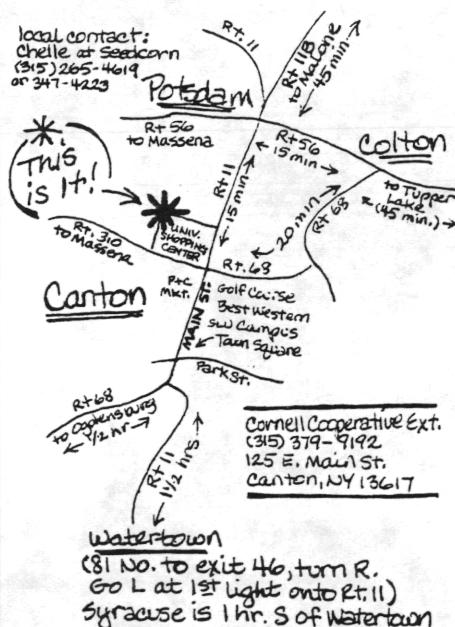 local contact:
Chelle at Seedcorn
(315) 265-4619
or 347-4223
Rt. 11
Rt 11B
to Malone
45 min
Potsdam
Rt 56
to Massena
Rt 56
15 min
Colton
This
is It!
Rt 11
15 min
to Tupper
Lake
(45 min.)
20 min
Rt 68
UNIV.
SHOPPING
CENTER
Rt. 310
to Massena
Rt. 68
P+C
Mkt.
Canton
MAIN ST.
Golf Course
Best Western
SLU Campus
Town Square
Park St.
Rt 68
to Ogdensburg
1/2 hr
Rt 11
1 1/2 hrs
Cornell Cooperative Ext.
(315) 379-9192
125 E. Main St.
Canton, NY 13617
Watertown
(81 No. to exit 46, turn R.
Go L at 1st light onto Rt. 11)
Syracuse is 1 hr. S of Watertown